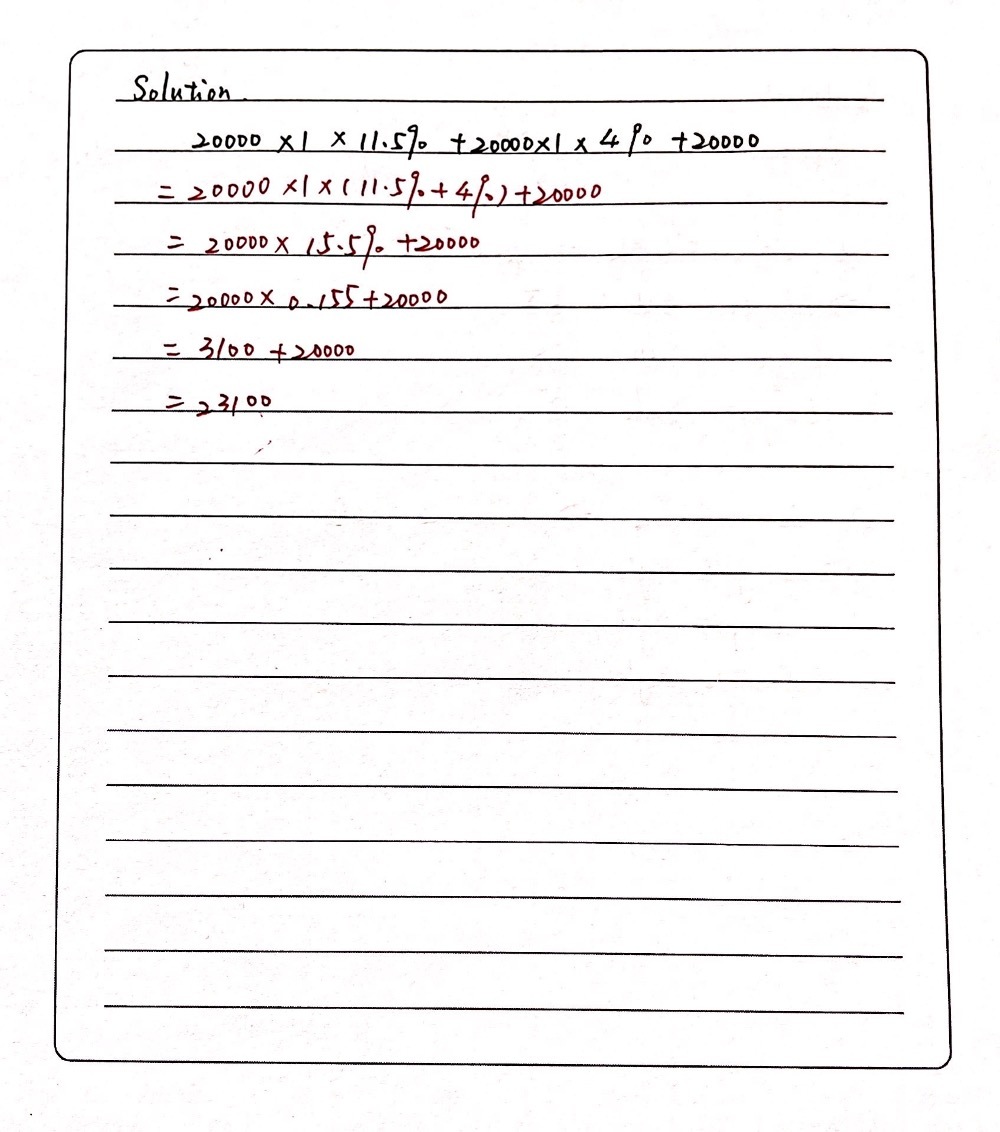 Solution.
20000 × 1 × 11.5% + 20000 × 1 × 4% + 20000
= 20000 × 1 × (11.5% + 4%) + 20000
= 20000 × 15.5% + 20000
= 20000 × 0.155 + 20000
= 3100 + 20000
= 23100